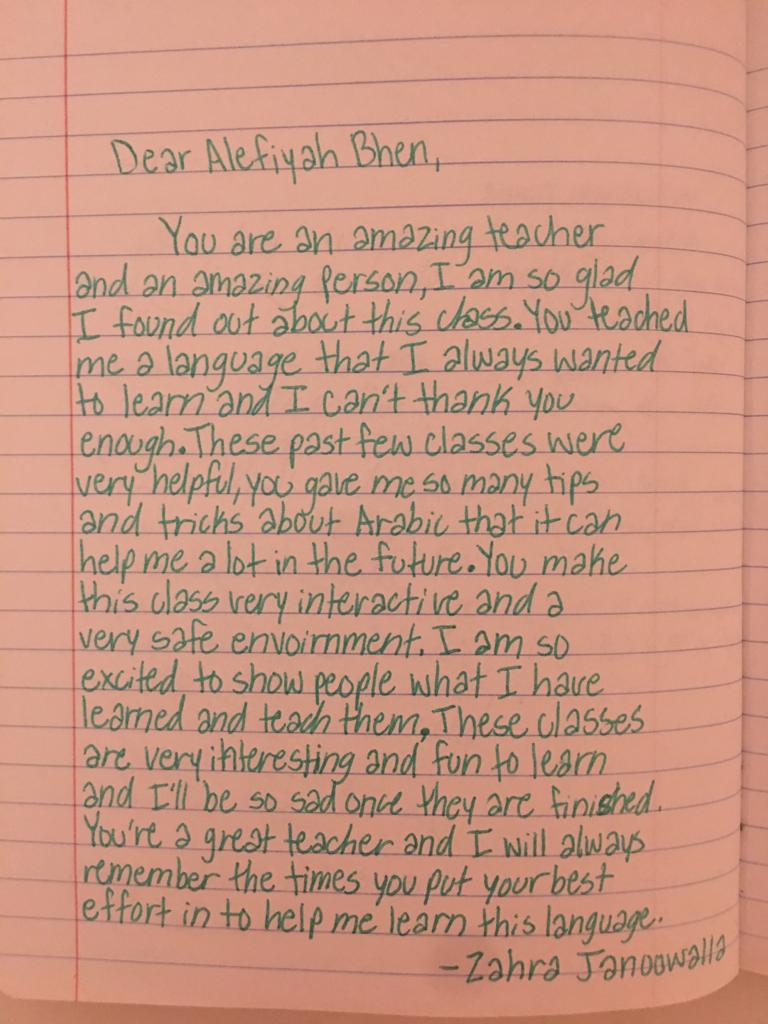 Dear Alefiyah Bhen,
You are an amazing teacher
and an amazing person, I am so glad
I found out about this class. You teached
me a language that I always wanted
to learn and I can't thank you
enough. These past few classes were
very helpful, you gave me so many tips
and tricks about Arabic that it can
help me a lot in the future. You make
this class very interactive and a
very safe envoirnment. I am so
excited to show people what I have
learned and teach them. These classes
are very interesting and fun to learn
and I'll be so sad once they are finished.
You're a great teacher and I will always
remember the times you put your best
effort in to help me learn this language.
-Zahra Janoowalla